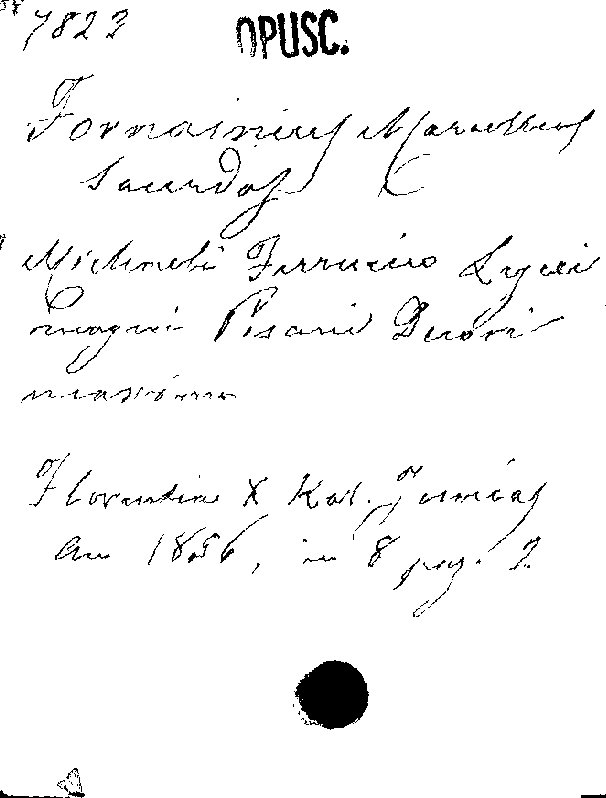 7823 OPUSC.
Fornainius Marcellus
Sacerdos
Michaeli Ferrucio Lycei
magni Pisani Decori
maximo
Florentiae X Kal. Junias
an 1856, in 8 pag. 2